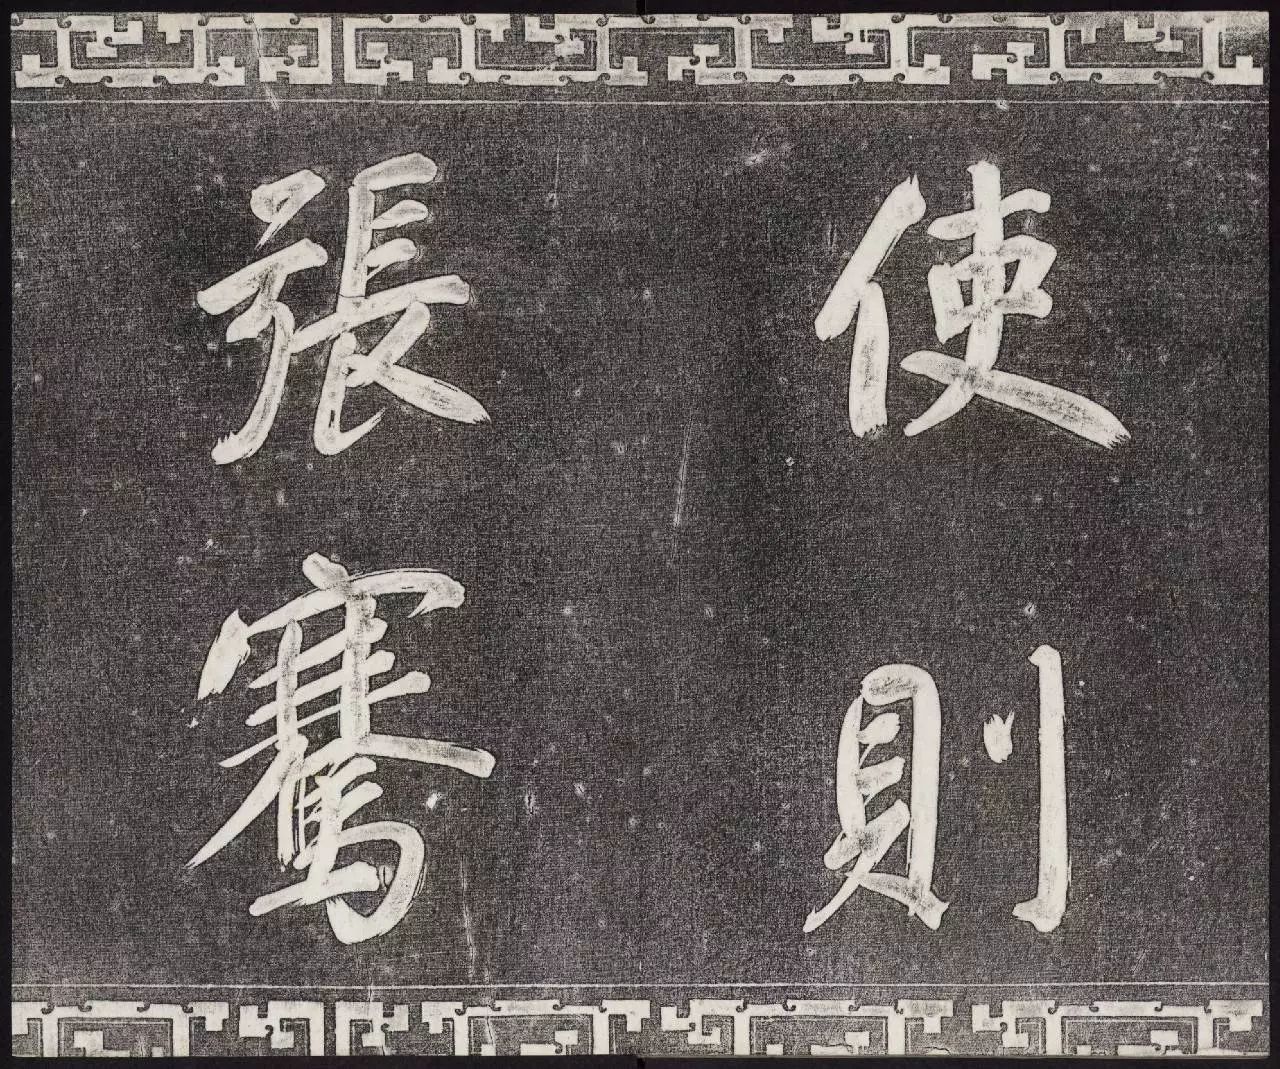 使則
張騫